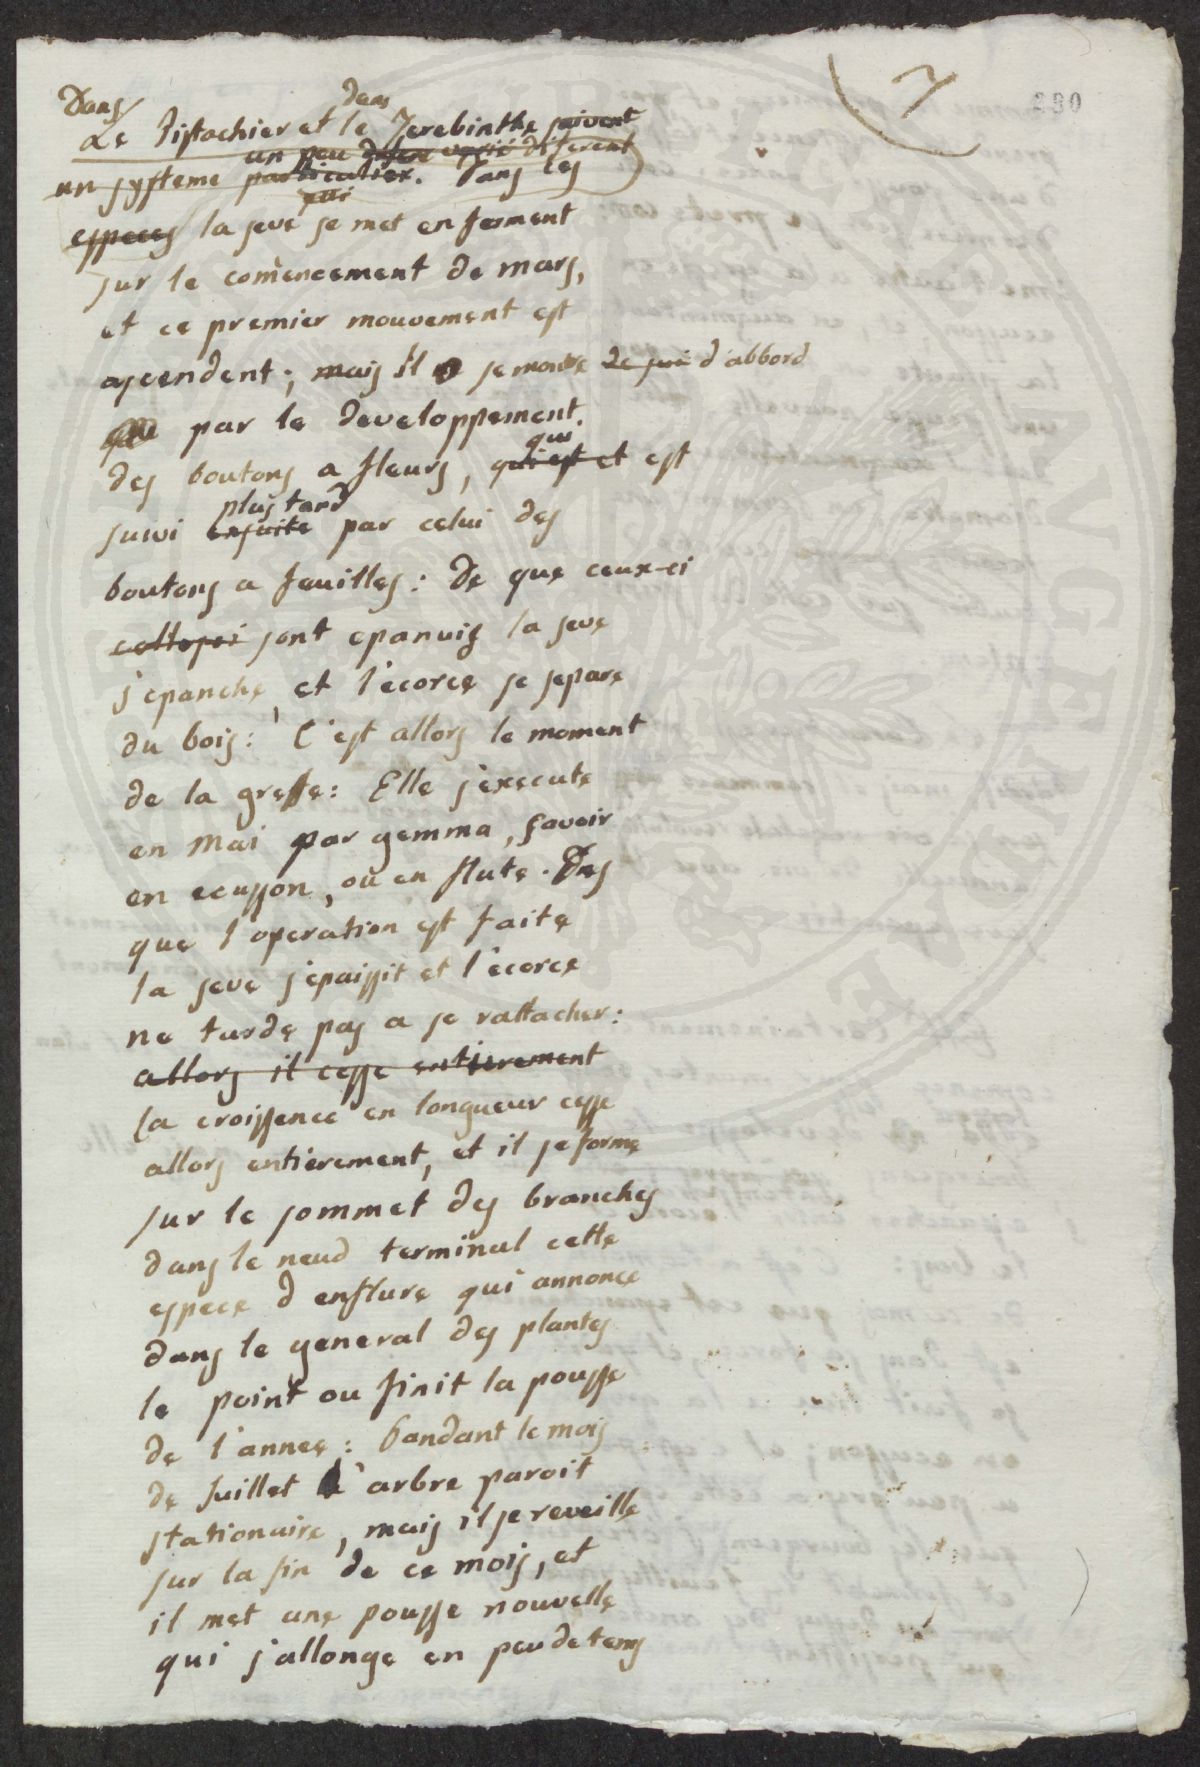 7
230
Dans dans
Le Pistachier et le Terebinthe suivent
un peu different
un systeme particulier. Dans les
especes la seve se met en ferment
sur le comencement de mars,
et ce premier mouvement est
ascendent; mais il se montre d'abbord
par le developpement.
des boutons a fleurs, qui est et est
qui
plus tard
suivi ensuite par celui des
boutons a feuilles: De que ceux-ci
sont epanuis la seve
s'epanche, et l'ecorce se separe
du bois: C'est allors le moment
de la greffe: Elle s'execute
en Mai par gemma, savoir
en ecusson, ou en flute. Des
que l'operation est faite
la seve s'epaissit et l'ecorce
ne tarde pas a se rattacher:
allors il cesse entierement
la croissence en longueur cesse
allors entierement, et il se forme
sur le sommet des branches
dans le neud terminal cette
espece d'enflure qui annonce
dans le general des plantes
le point ou finit la pousse
de l'annee: Pandant le mois
de Juillet l'arbre paroit
stationaire, mais il se reveille
sur la fin de ce mois, et
il met une pousse nouvelle
qui s'allonge en peu de tems